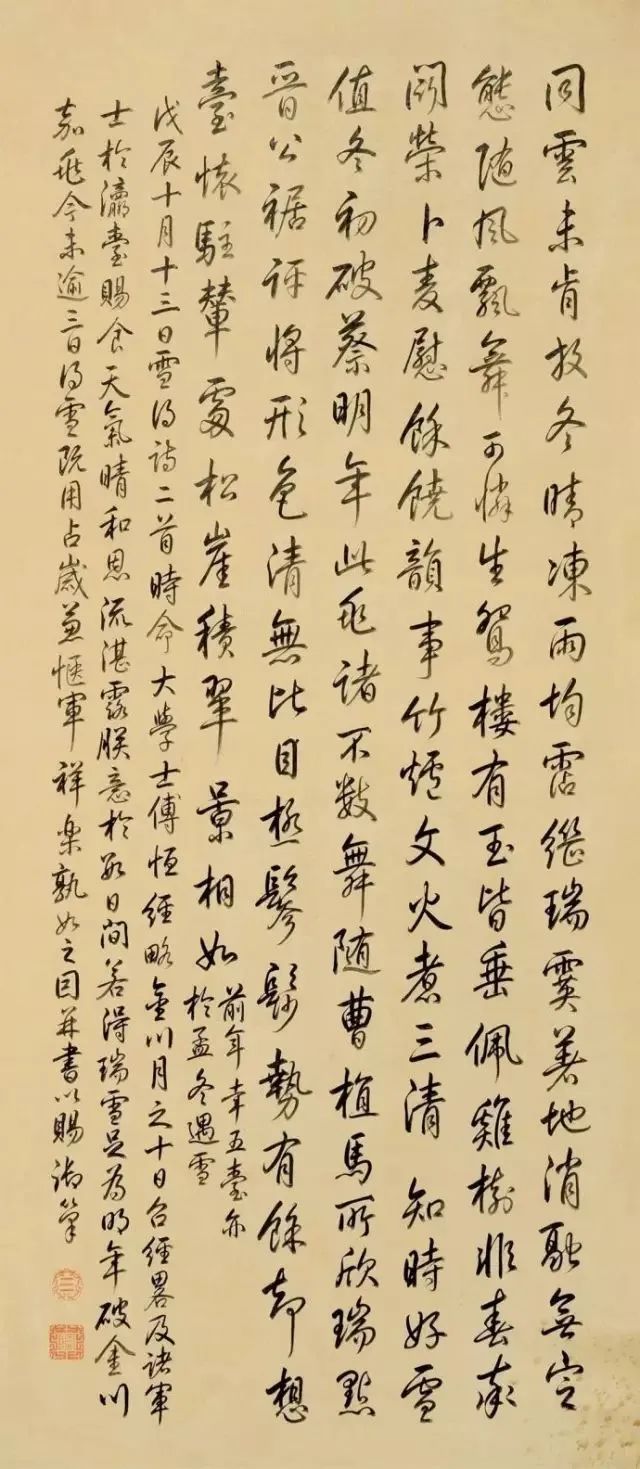 同雲未肯放冬晴凍雨均霑繼瑞霙著地消融無定
態隨風飄舞可憐生鴛樓有玉皆垂佩雞樹非春率
鬬榮卜麥慰餘饒韻事竹爐文火煮三清 知時好雪
值冬初破蔡明年此兆諸不數舞隨曹植馬所欣瑞點
晉公裾評將形色清無比目極鬖髿勢有餘却想
臺懷駐輦處松崖積翠景相如
前年幸五臺亦
於孟冬遇雪
戊辰十月十三日雪得詩二首時命大學士傅恒經略金川月之十日召經畧及諸軍
士於瀛臺賜食天氣晴和恩流湛露朕意於數日間若得瑞雪足為明年破金川
嘉兆今未逾三日得雪既用占歲兼愜軍祥樂孰如之因并書以賜 御筆